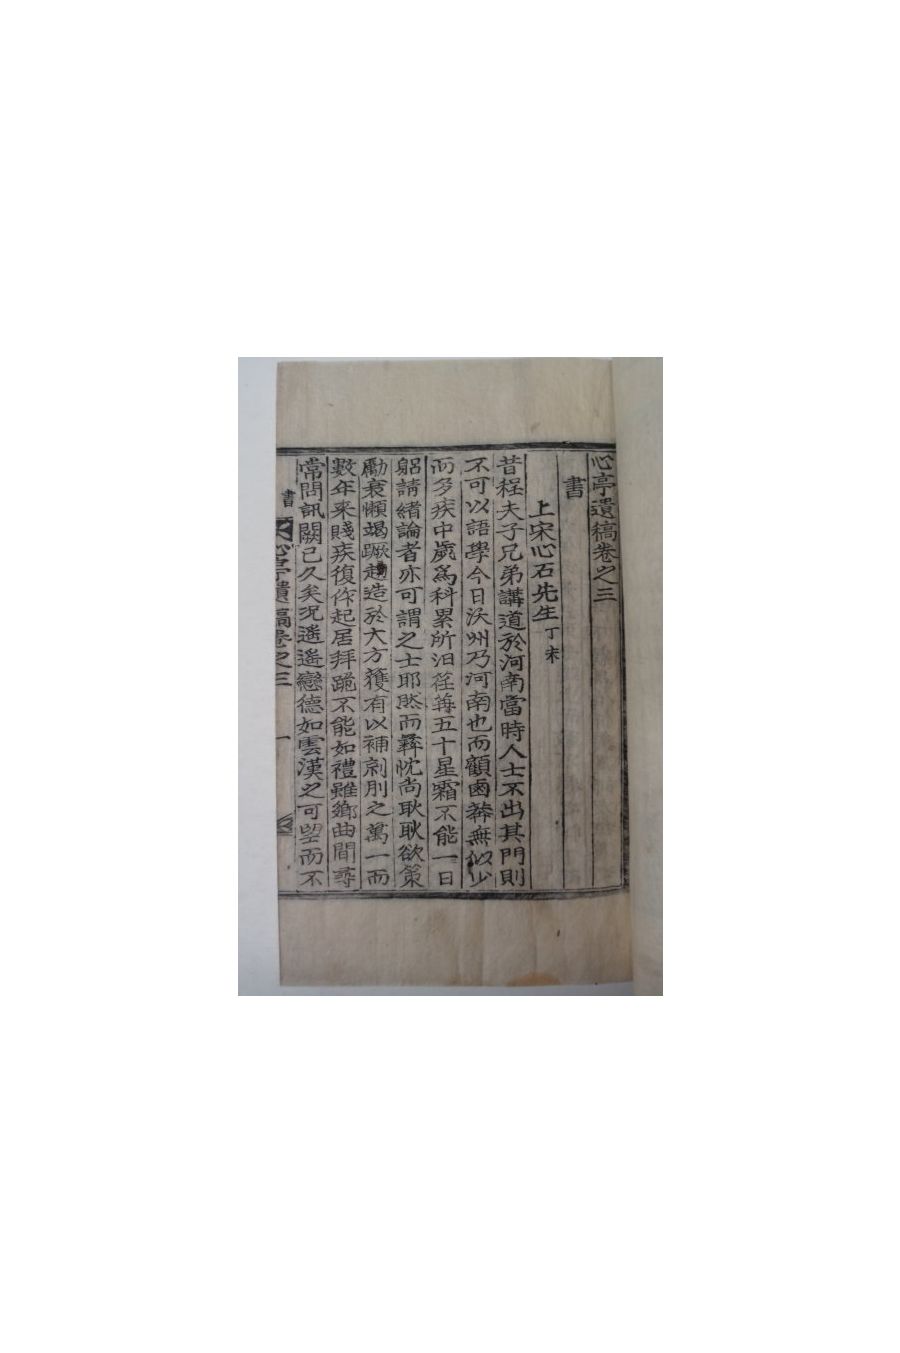 心亭遺稿卷之三
書
上宋心石先生 丁未
昔程夫子兄弟講道於河南當時人士不出其門則
不可以語學今日沃州乃河南也而顧鹵莽無似少
而多疾中歲爲科累所汨荏苒五十星霜不能一日
躬請緖論者亦可謂之士耶然而彛忱尙耿耿欲策
勵衰懶竭蹶趨造於大方獲有以補劓刖之萬一而
數年来賤疾復作起居拜跪不能如禮雖鄉曲間尋
常問訊闕已久矣况遙遙戀德如雲漢之可望而不
書 心亭遺稿卷之三 一